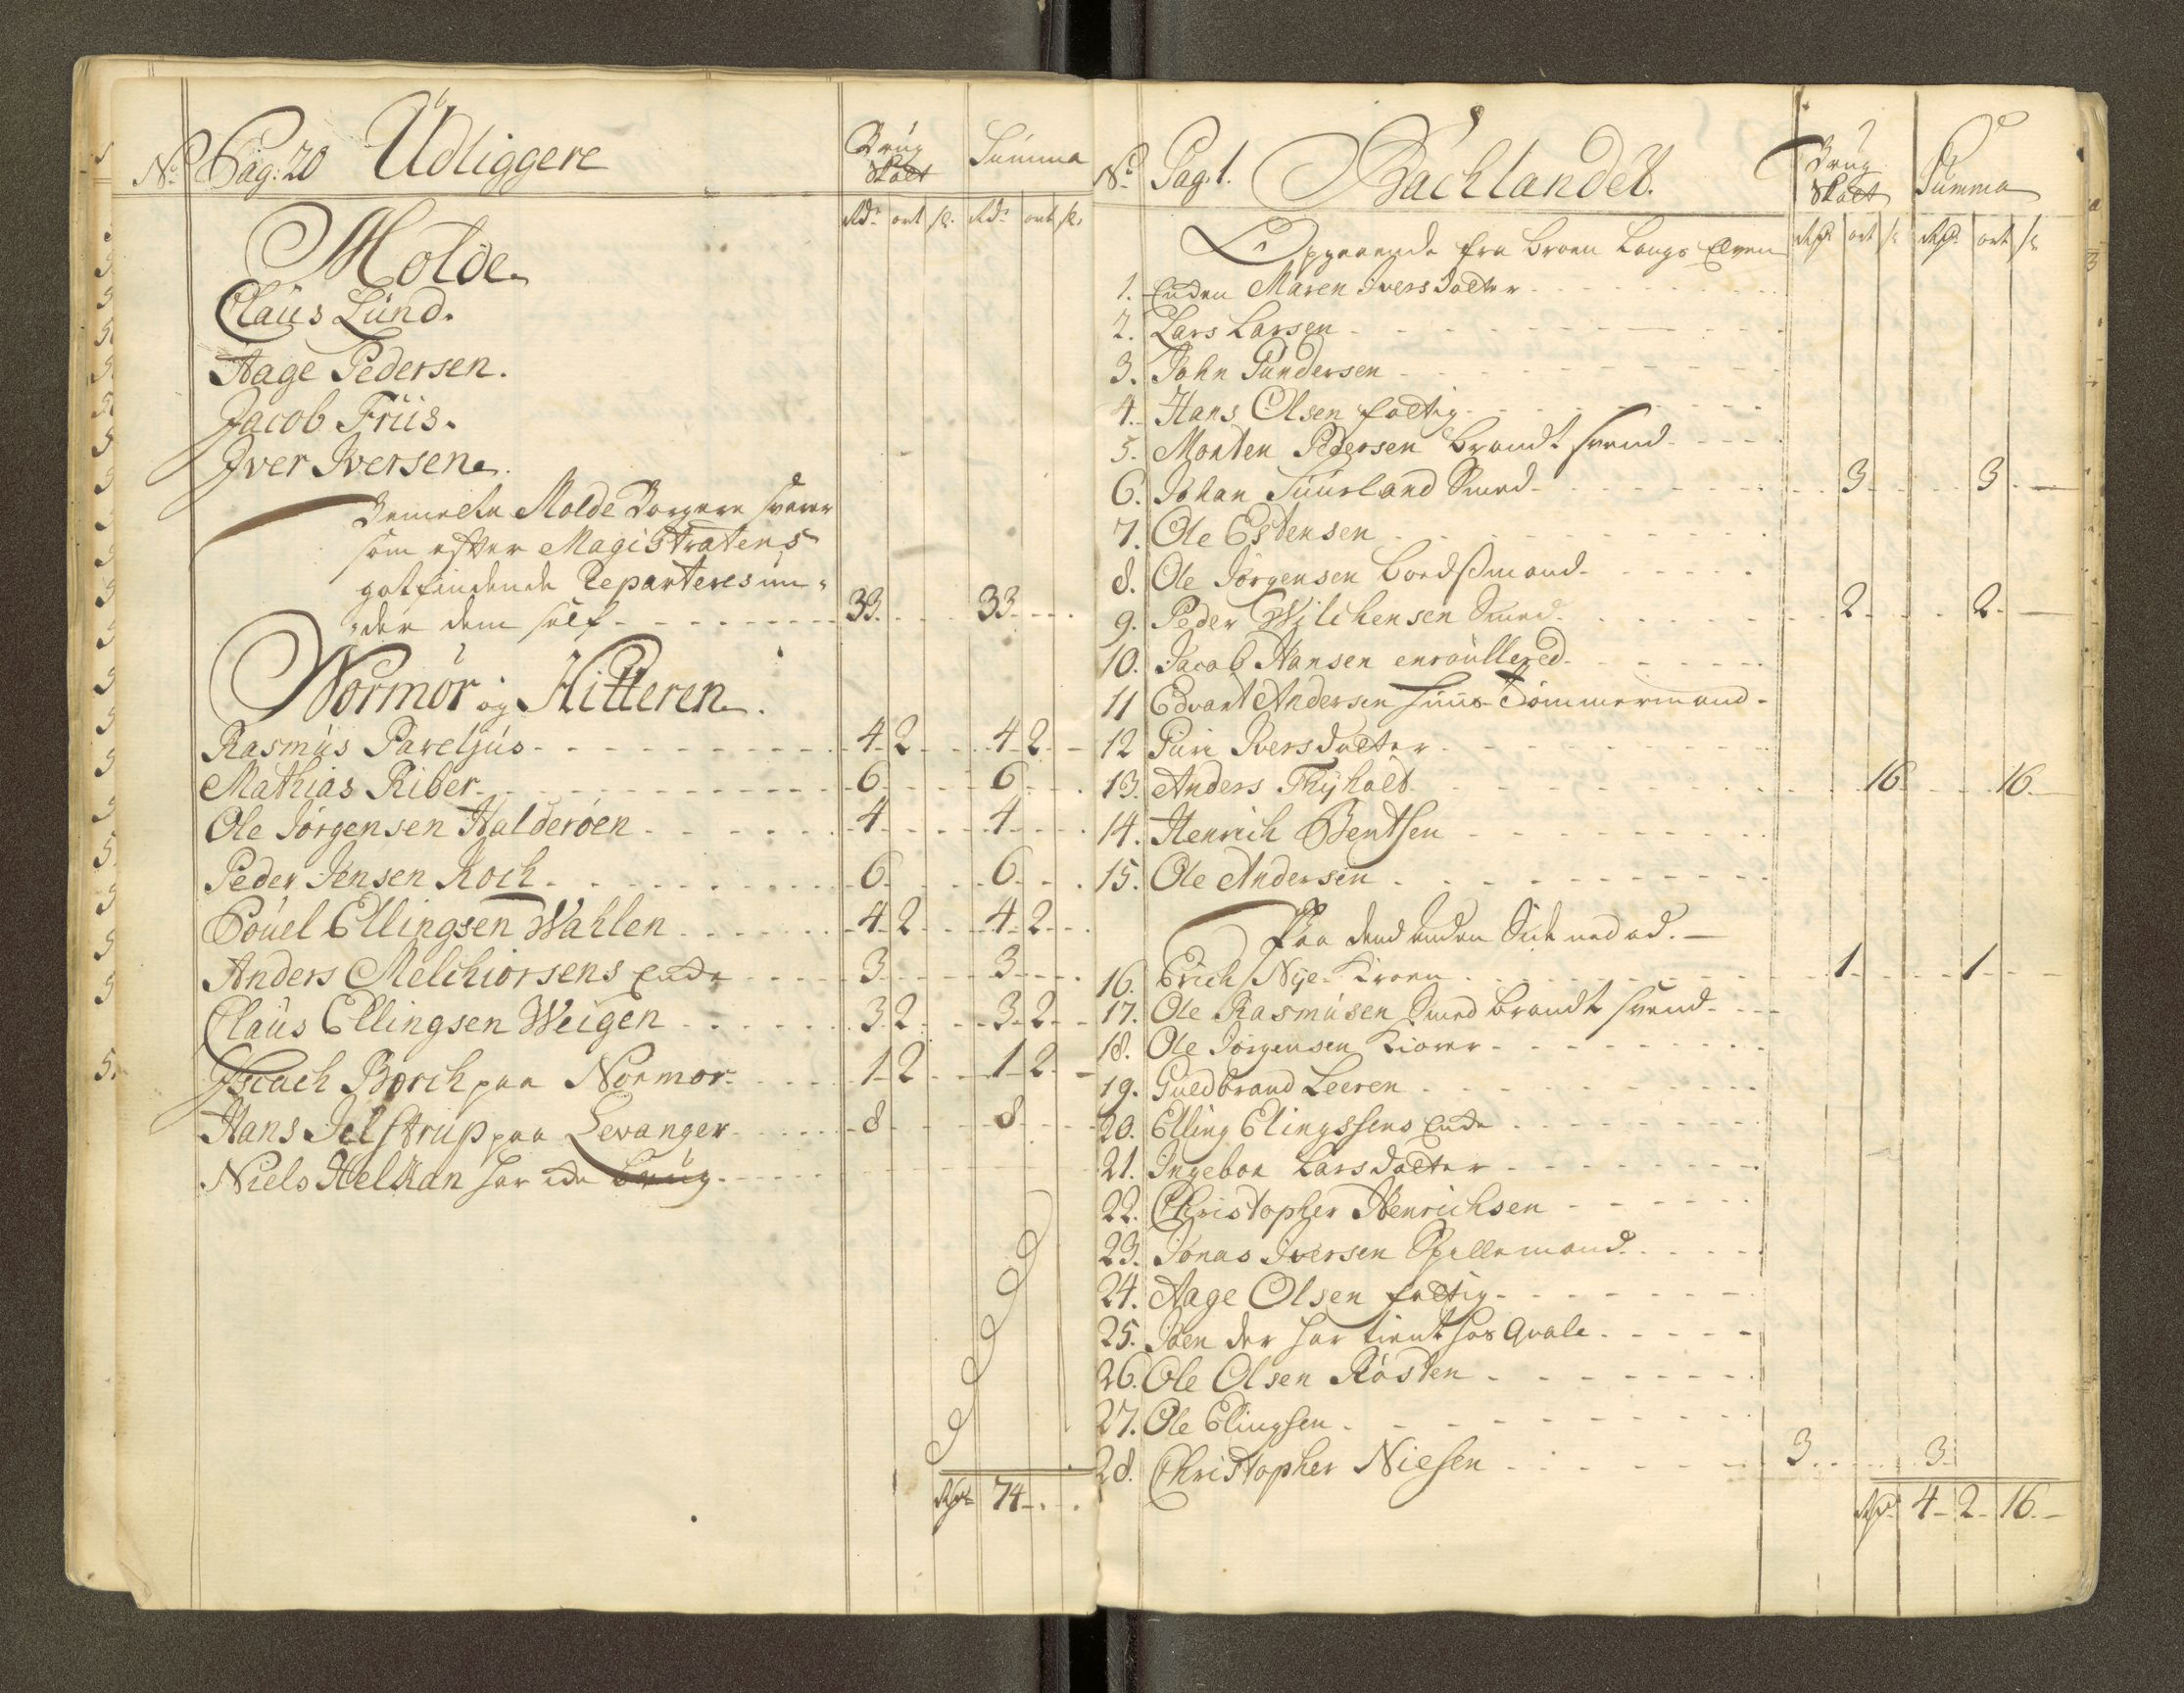 No Pag: 20 Udliggere Brug Skatt Summa
Rdr ort s. Rdr ort s.
Molde
Claus Lund.
Aage Pedersen.
Jacob Friis.
Iver Iversen.
Bemelte Molde Borgere svarer
som efter Magistratens
gotfindende Reparteres un-
der dem self - 33. 33.
Normör og Hitteren.
Rasmus Pareljus 4 2 4 2
Mathias Riber 6 6
Ole Jörgensen Halderöen 4 4
Peder Jensen Koch 6 6
Povel Ellingsen Wahlen 4 2 4 2
Anders Melchiorsens Enke 3 3
Claus Ellingsen Weigen 3 2 3 2
Isaach Borch paa Normor 1 2 1 2
Hans Jelstrup paa Levanger 8 8
Niels Helkan har ike brug
Rdr 74
No Pag. 1. Bachlandet. Brug Skatt Summa
Opgaaende fra broen langs Elven Rdr ort s Rdr ort s
1. Enken Maren Ivers dotter
2. Lars Larsen
3. John Gundersen
4. Hans Olsen fattig
5. Morten Pedersen brandt svend
6. Johan Suurland Smed 3 3
7. Ole Estensen
8. Ole Jörgensen
9. Peder Wilchensen Smed 2 2
10. Jacob Hansen enroullered
11 Edvart Andersen huus Tömmermand
12 Guri Ivers dotter
13. Anders Thyholt 16. 16.
14. Henrich Bentsen
15. Ole Andersen
Paa dend anden Side ned ad.
16. Erich Nye Kroen 1 1
17. Ole Rasmusen Smed brandt svend
18. Ole Jörgensen Kiörer
19. Guldbrand Leeren
20. Elling Elingssens Enke
21. Ingebor Lars dotter
22. Christopher Henrichsen
23. Jonas Iversen Spillemand
24. Aage Olsen fattig
25. Joen der har tient hos Qvale
26. Ole Olsen Rösten
27. Ole Elingsen
28. Christopher Niesen 3 3
Rdr 4 2 16